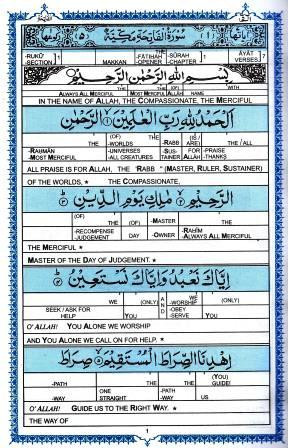 سُورَةُ الْفَاتِحَةِ مَكِّيَّةٌ
-RUKŪ 1 -FĀTIḤAH -SŪRAH 1 ĀYĀT 7
-SECTION MAKKAN -OPENER -CHAPTER VERSES
بِسْمِ اللّٰهِ الرَّحْمٰنِ الرَّحِيْمِ
ALWAYS ALL MERCIFUL MOST MERCIFUL ALLĀH NAME
IN THE NAME OF ALLAH, THE COMPASSIONATE, THE MERCIFUL
اَلْحَمْدُ لِلّٰهِ رَبِّ الْعٰلَمِيْنَ ۱ الرَّحْمٰنِ
(OF) THE (OF) (IS/
-RAḤMĀN -WORLDS -RABB ARE) THE / ALL
-MOST MERCIFUL -UNIVERSES -SUS- FOR -PRAISE
-ALL CREATURES TAINER ALLĀH -THANKS
ALL PRAISE IS FOR ALLAH, THE 'RABB' (MASTER, RULER, SUSTAINER)
OF THE WORLDS. ★ THE COMPASSIONATE,
الرَّحِيْمِ ۲ مٰلِكِ يَوْمِ الدِّيْنِ ۳
(OF) THE (OF) -MASTER THE
-RECOMPENSE -RAḤĪM
-JUDGEMENT DAY -OWNER -ALWAYS ALL MERCIFUL
THE MERCIFUL ★
MASTER OF THE DAY OF JUDGEMENT. ★
اِيَّاكَ نَعْبُدُ وَاِيَّاكَ نَسْتَعِيْنُ ۴
WE (ONLY) A WE (ONLY)
SEEK / ASK FOR N -WORSHIP
HELP YOU D -OBEY YOU
-SERVE
O' ALLAH! YOU ALONE WE WORSHIP
AND YOU ALONE WE CALL ON FOR HELP. ★
اِهْدِنَا الصِّرَاطَ الْمُسْتَقِيْمَ ۵ صِرَاطَ
-PATH THE THE (YOU)
ONE -PATH GUIDE!
-WAY STRAIGHT -WAY US
O' ALLAH! GUIDE US TO THE RIGHT WAY. ★
THE WAY OF
1